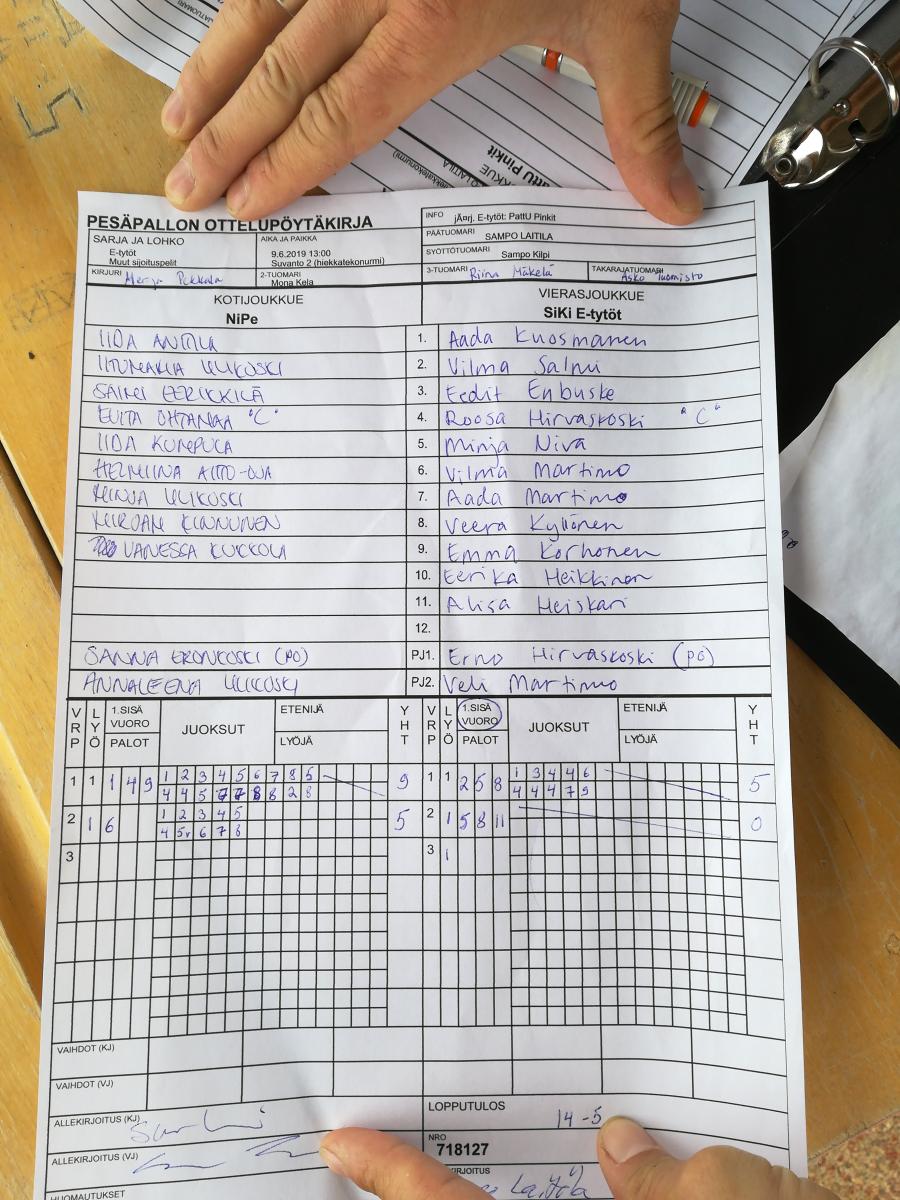 PESÄPALLON OTTELUPÖYTÄKIRJA
INFO jÃ¤rj. E-tytöt: PattU Pinkit
PÄÄTUOMARI SAMPO LAITILA
SARJA JA LOHKO
E-tytöt
Muut sijoituspelit
AIKA JA PAIKKA
9.6.2019 13:00
Suvanto 2 (hiekkatekonurmi)
SYÖTTÖTUOMARI Sampo Kilpi
KIRJURI Merja Pekkala
2-TUOMARI Mona Kela
3-TUOMARI Riina Mäkelä
TAKARAJATUOMARI Asko Tuomisto
KOTIJOUKKUE
NiPe
VIERASJOUKKUE
SiKi E-tytöt
IIDA ANTTILA 1. Aada Kuosmanen
ULIKOSKI 2. Vilma Salmi
SAIMI EERIKKILÄ 3. Eedit Enbuske
OHTANAA "C" 4. Roosa Hirvaskoski "C"
IIDA KUMPULA 5. Minja Niva
HELMIINA AITTO-OJA 6. Vilma Martimo
MINJA ULIKOSKI 7. Aada Martimo
MIRJAM KINNUNEN 8. Veera Kyllönen
VANESSA KUKKOLA 9. Emma Korhonen
10. Eerika Heikkinen
11. Alisa Heiskari
12.
SANNA ERONKOSKI (PÖ) PJ1. Erno Hirvaskoski (pö)
ANNALEENA ULIKOSKI PJ2. Veli Martimo
VRP LYÖ 1.SISÄ VUORO PALOT JUOKSUT ETENIJÄ LYÖJÄ YHT VRP LYÖ 1.SISÄ VUORO PALOT JUOKSUT ETENIJÄ LYÖJÄ YHT
1 1 1 4 9 1 2 3 4 5 6 7 8 5 9 1 1 2 5 8 1 3 4 4 6 5
4 4 5 7 7 8 8 2 8 4 4 4 7 9
2 1 6 1 2 3 4 5 5 2 1 5 8 11 0
4 5v 6 7 8
3 3 1
VAIHDOT (KJ)
VAIHDOT (VJ)
ALLEKIRJOITUS (KJ)
LOPPUTULOS 14-5
ALLEKIRJOITUS (VJ)
NRO
718127
KIRJOITUS Laitila
HUOMAUTUKSET